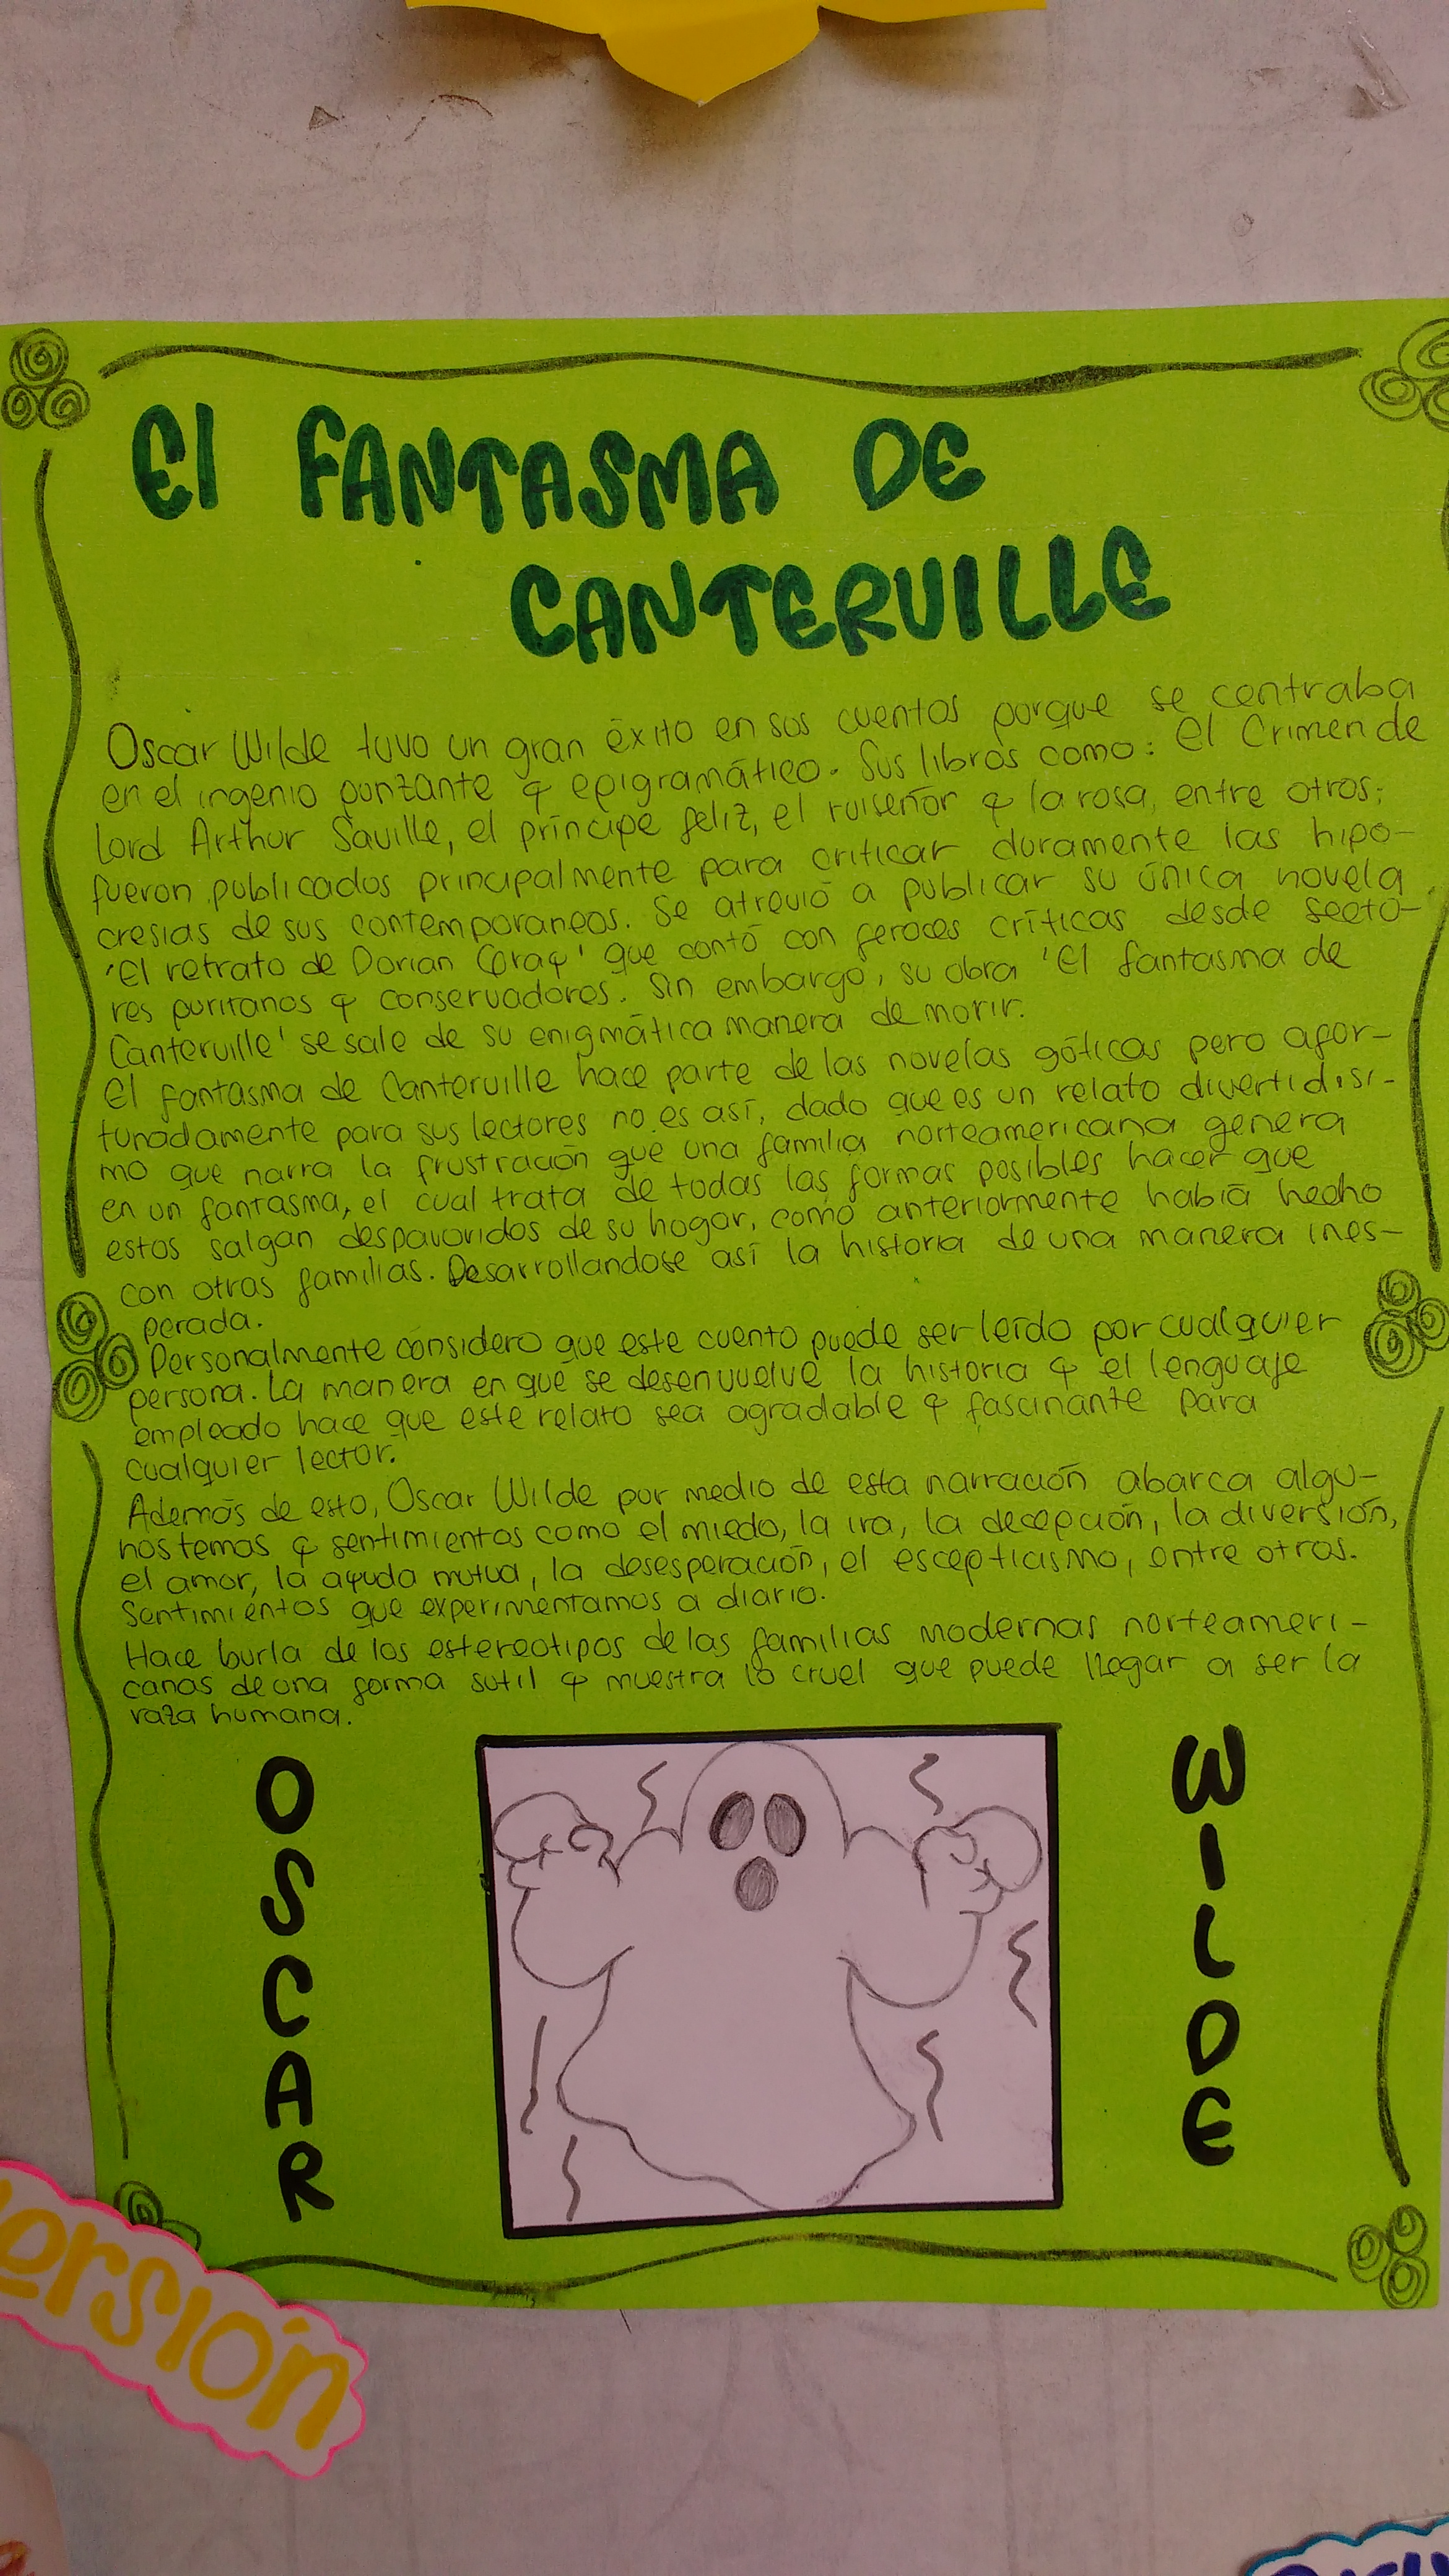 El FANTASMA DE
CANTERVILLE
Oscar Wilde tuvo un gran éxito en sus cuentos porque se centraba
en el ingenio punzante y epigramático. Sus libros como: el Crimen de
Lord Arthur Saville, el príncipe feliz, el ruiseñor y la rosa, entre otros;
fueron publicados principalmente para criticar duramente las hipo-
cresias de sus contemporaneos. Se atrevió a publicar su única novela
'El retrato de Dorian Gray' que contó con feroces críticas desde secto-
res puritanos y conservadores. Sin embargo, su obra 'El fantasma de
Canterville' se sale de su enigmática manera de morir.
El fantasma de Canterville hace parte de las novelas góticas pero afor-
tunadamente para sus lectores no es así, dado que es un relato divertidisi-
mo que narra la frustración que una familia norteamericana genera
en un fantasma, el cual trata de todas las formas posibles hacer que
estos salgan despavoridos de su hogar, como anteriormente había hecho
con otras familias. Desarrollandose así la historia de una manera ines-
perada.
Personalmente considero que este cuento puede ser leído por cualquier
persona. La manera en que se desenvuelve la historia y el lenguaje
empleado hace que este relato sea agradable y fascinante para
cualquier lector.
Además de esto, Oscar Wilde por medio de esta narración abarca algu-
nos temas y sentimientos como el miedo, la ira, la decepción, la diversión,
el amor, la ayuda mutua, la desesperación, el escepticismo, entre otros.
Sentimientos que experimentamos a diario.
Hace burla de los estereotipos de las familias modernas norteameri-
canas de una forma sutil y muestra lo cruel que puede llegar a ser la
raza humana.
OSCAR
WILDE
ersión